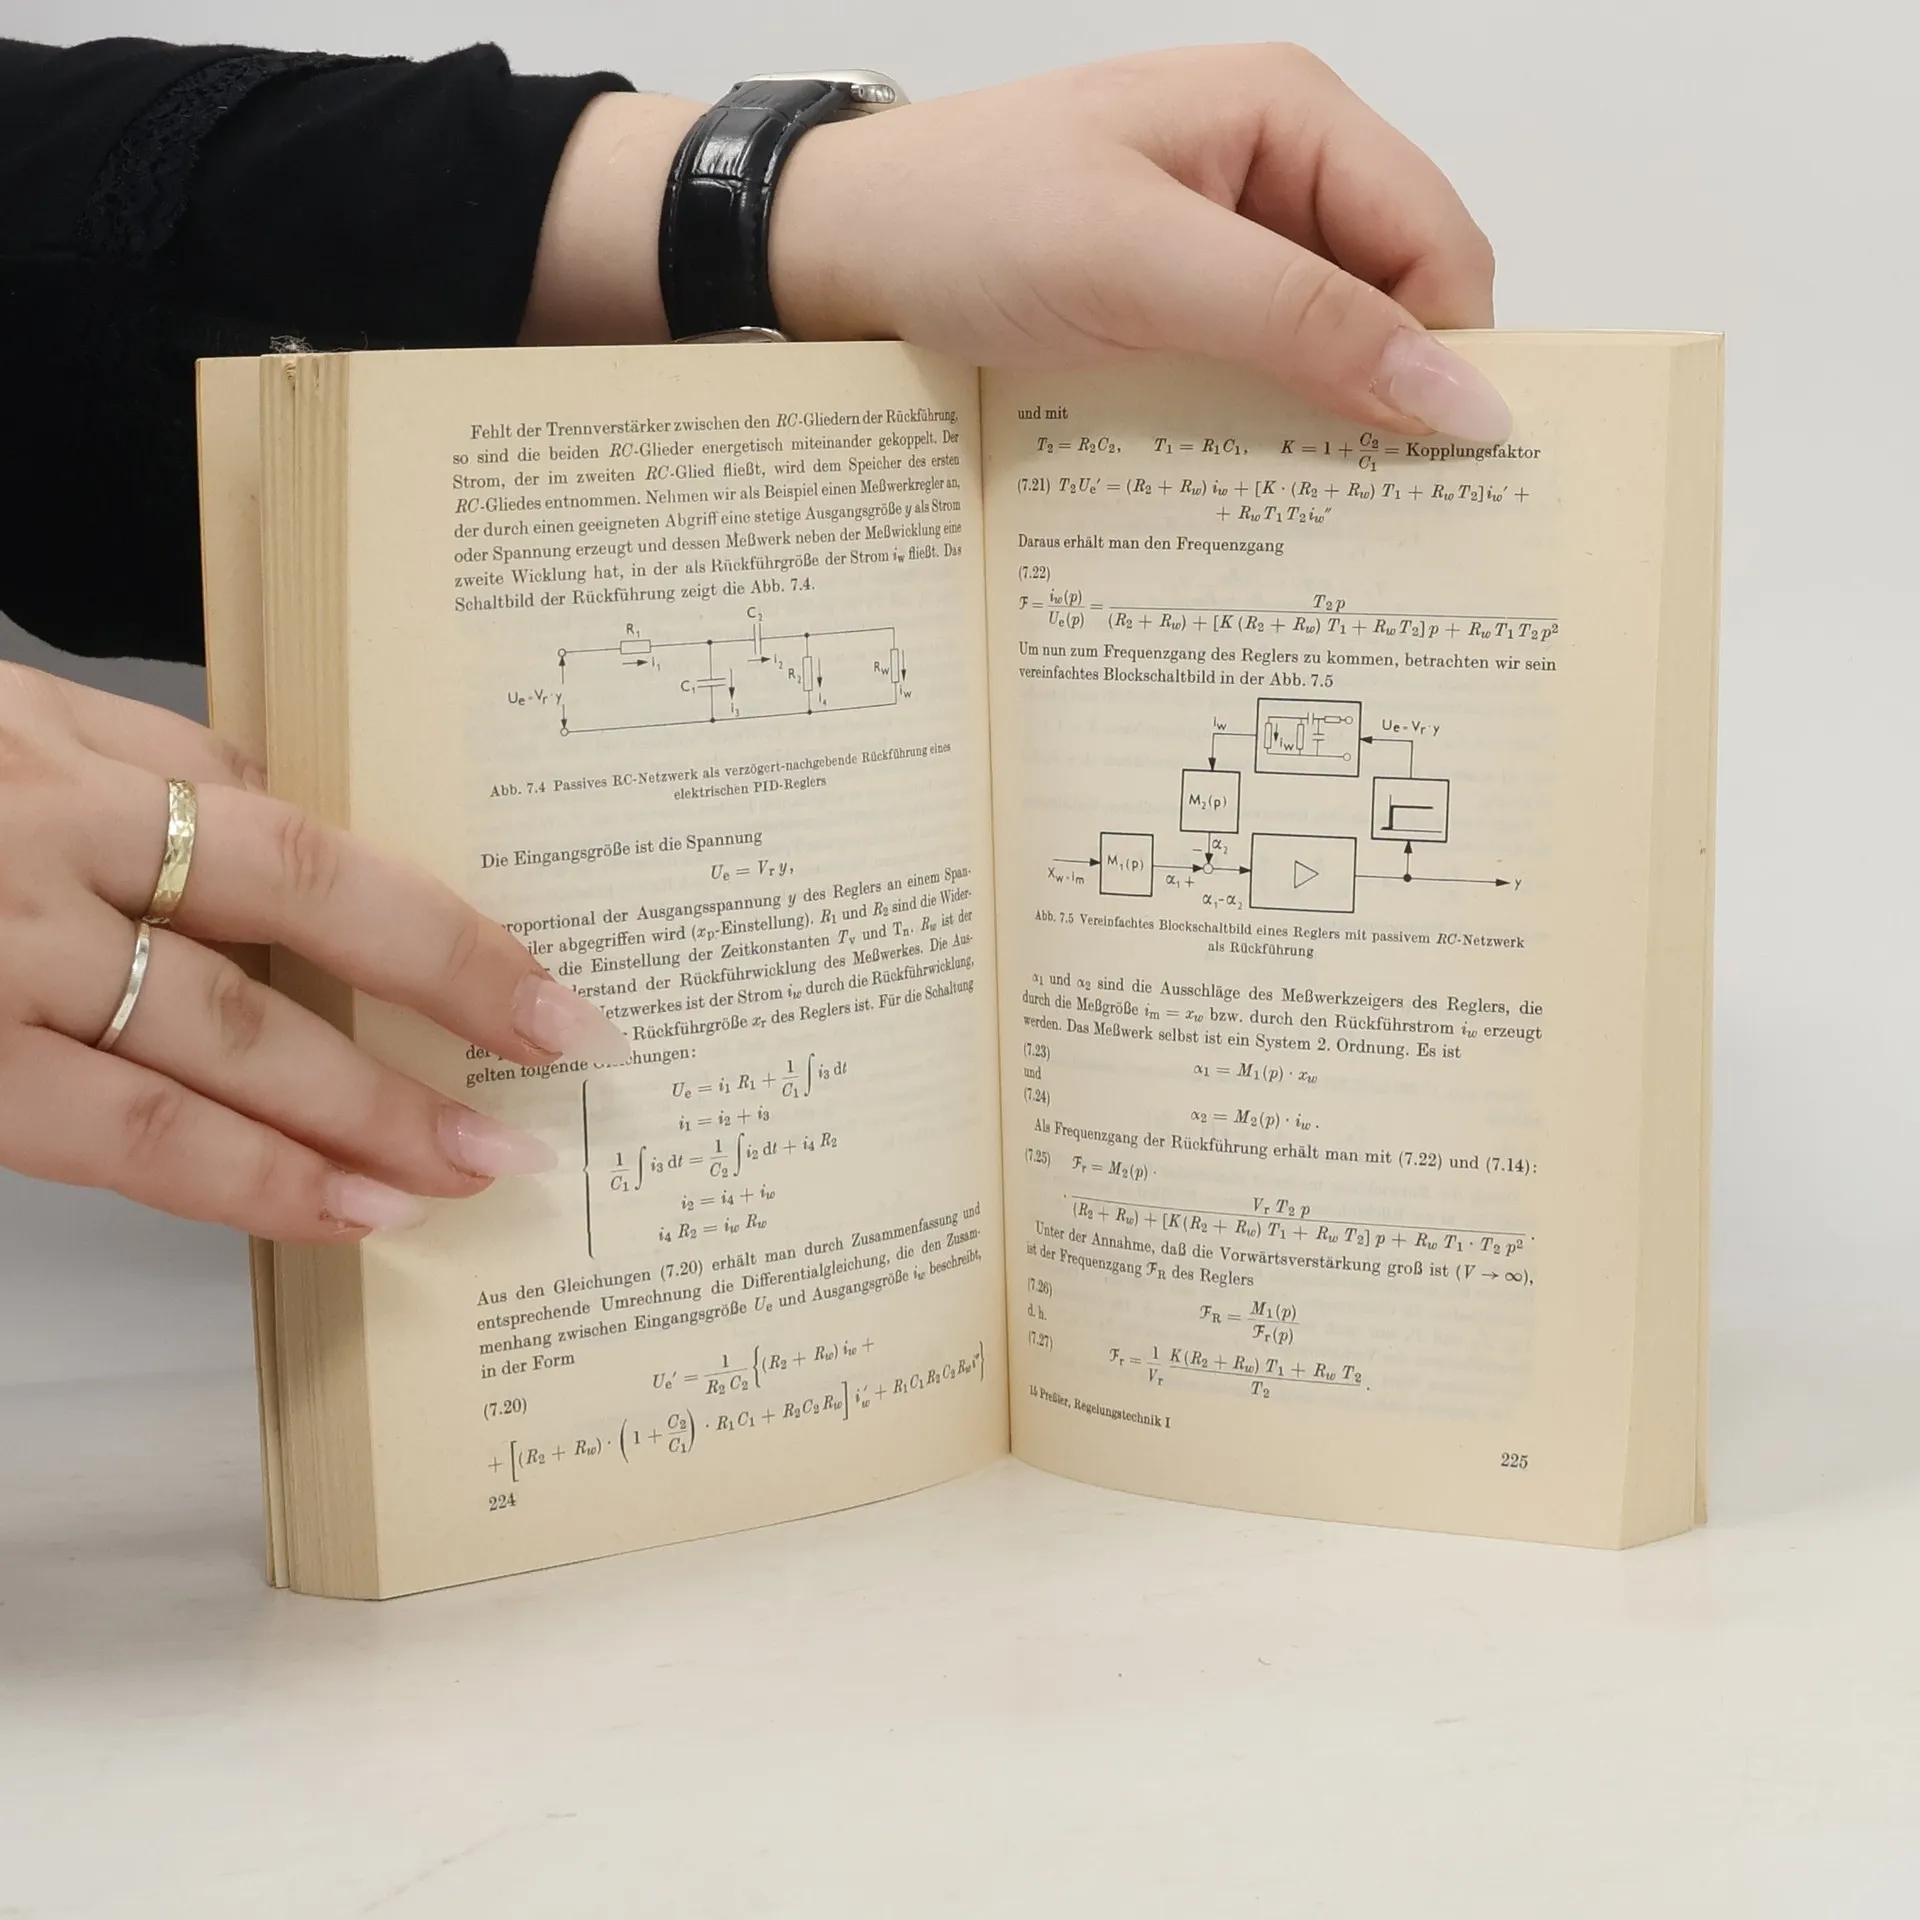 Fehlt der Trennverstärker zwischen den RC-Gliedern der Rückführung,
so sind die beiden RC-Glieder energetisch miteinander gekoppelt. Der
Strom, der im zweiten RC-Glied fließt, wird dem Speicher des ersten
RC-Gliedes entnommen. Nehmen wir als Beispiel einen Meßwerkregler an,
der durch einen geeigneten Abgriff eine stetige Ausgangsgröße y als Strom
oder Spannung erzeugt und dessen Meßwerk neben der Meßwicklung eine
zweite Wicklung hat, in der als Rückführgröße der Strom i_w fließt. Das
Schaltbild der Rückführung zeigt die Abb. 7.4.
C₂
R₁
i₁
i₂
C₁
R₂
R_w
U_e=V_r·y
i₃
i₄
i_w
Abb. 7.4 Passives RC-Netzwerk als verzögert-nachgebende Rückführung eines
elektrischen PID-Reglers
Die Eingangsgröße ist die Spannung
U_e = V_r y,
proportional der Ausgangsspannung y des Reglers an einem Span-
iler abgegriffen wird (x_p-Einstellung). R₁ und R₂ sind die Wider-
die Einstellung der Zeitkonstanten T_v und T_n. R_w ist der
derstand der Rückführwicklung des Meßwerkes. Die Aus-
Netzwerkes ist der Strom i_w durch die Rückführwicklung,
der Rückführgröße x_r des Reglers ist. Für die Schaltung
gelten folgende chungen:
U_e = i₁ R₁ + 1/C₁ ∫ i₃ dt
i₁ = i₂ + i₃
1/C₁ ∫ i₃ dt = 1/C₂ ∫ i₂ dt + i₄ R₂
i₂ = i₄ + i_w
i₄ R₂ = i_w R_w
Aus den Gleichungen (7.20) erhält man durch Zusammenfassung und
entsprechende Umrechnung die Differentialgleichung, die den Zusam-
menhang zwischen Eingangsgröße U_e und Ausgangsgröße i_w beschreibt,
in der Form
U_e′ = 1/(R₂ C₂) {(R₂ + R_w) i_w +
(7.20)
+ [(R₂ + R_w) · (1 + C₂/C₁) · R₁C₁ + R₂C₂R_w] i_w′ + R₁C₁R₂C₂R_w i″}
224
und mit
T₂ = R₂C₂, T₁ = R₁C₁, K = 1 + C₂/C₁ = Kopplungsfaktor
(7.21) T₂U_e′ = (R₂ + R_w) i_w + [K · (R₂ + R_w) T₁ + R_w T₂] i_w′ +
+ R_w T₁ T₂ i_w″
Daraus erhält man den Frequenzgang
(7.22)
F = i_w(p)/U_e(p) = T₂ p/((R₂ + R_w) + [K (R₂ + R_w) T₁ + R_w T₂] p + R_w T₁ T₂ p²)
Um nun zum Frequenzgang des Reglers zu kommen, betrachten wir sein
vereinfachtes Blockschaltbild in der Abb. 7.5
i_w
i_w
U_e=V_r·y
M₂(p)
− α₂
M₁(p)
x_w=i_m
α₁ +
α₁-α₂
y
Abb. 7.5 Vereinfachtes Blockschaltbild eines Reglers mit passivem RC-Netzwerk
als Rückführung
α₁ und α₂ sind die Ausschläge des Meßwerkzeigers des Reglers, die
durch die Meßgröße i_m = x_w bzw. durch den Rückführstrom i_w erzeugt
werden. Das Meßwerk selbst ist ein System 2. Ordnung. Es ist
(7.23)
α₁ = M₁(p) · x_w
und
(7.24)
α₂ = M₂(p) · i_w .
Als Frequenzgang der Rückführung erhält man mit (7.22) und (7.14):
(7.25) F_r = M₂(p) ·
· V_r T₂ p/((R₂ + R_w) + [K(R₂ + R_w) T₁ + R_w T₂] p + R_w T₁ · T₂ p²) .
Unter der Annahme, daß die Vorwärtsverstärkung groß ist (V → ∞),
ist der Frequenzgang F_R des Reglers
(7.26)
F_R = M₁(p)/F_r(p)
d. h.
(7.27)
F_r = 1/V_r K(R₂ + R_w) T₁ + R_w T₂/T₂ .
15 Preßler, Regelungstechnik I
225